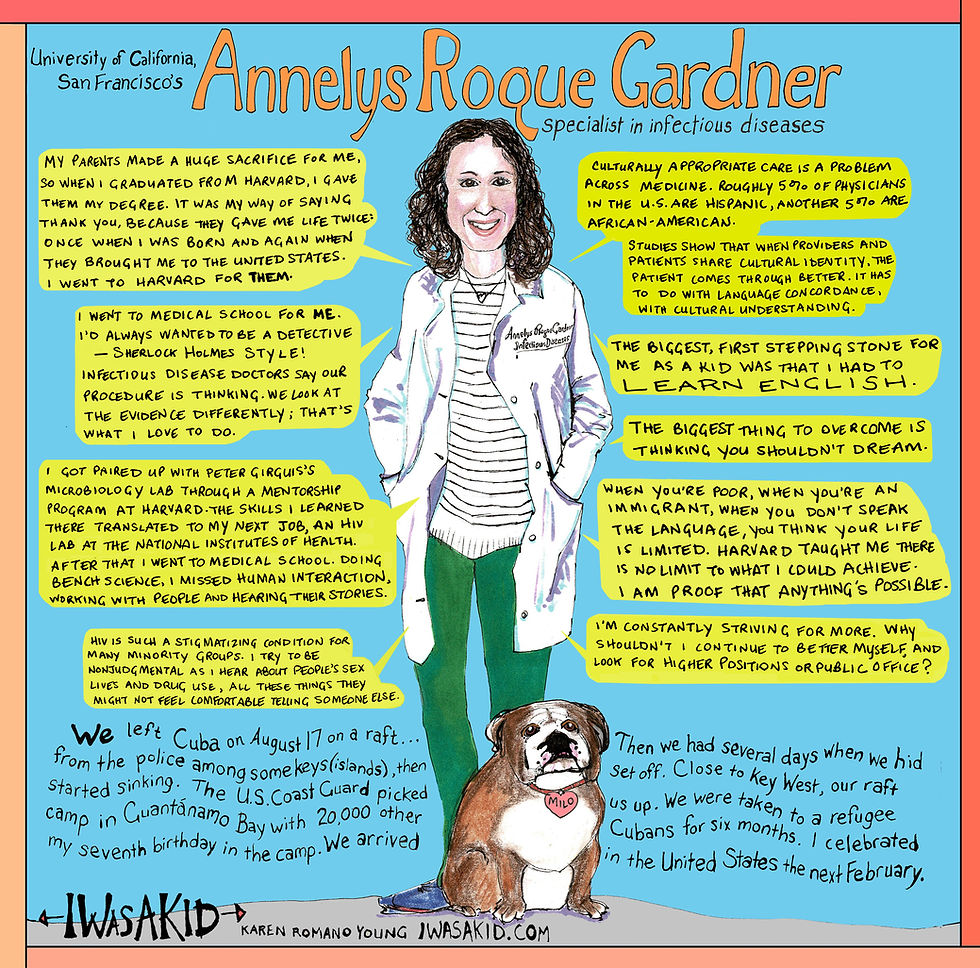 University of California,
San Francisco's
Annelys Roque Gardner
specialist in infectious diseases
MY PARENTS MADE A HUGE SACRIFICE FOR ME,
SO WHEN I GRADUATED FROM HARVARD, I GAVE
THEM MY DEGREE. IT WAS MY WAY OF SAYING
THANK YOU, BECAUSE THEY GAVE ME LIFE TWICE:
ONCE WHEN I WAS BORN AND AGAIN WHEN
THEY BROUGHT ME TO THE UNITED STATES.
I WENT TO HARVARD FOR THEM.
I WENT TO MEDICAL SCHOOL FOR ME.
I'D ALWAYS WANTED TO BE A DETECTIVE
— SHERLOCK HOLMES STYLE!
INFECTIOUS DISEASE DOCTORS SAY OUR
PROCEDURE IS THINKING. WE LOOK AT
THE EVIDENCE DIFFERENTLY; THAT'S
WHAT I LOVE TO DO.
I GOT PAIRED UP WITH PETER GIRGUIS'S
MICROBIOLOGY LAB THROUGH A MENTORSHIP
PROGRAM AT HARVARD. THE SKILLS I LEARNED
THERE TRANSLATED TO MY NEXT JOB, AN HIV
LAB AT THE NATIONAL INSTITUTES OF HEALTH.
AFTER THAT I WENT TO MEDICAL SCHOOL. DOING
BENCH SCIENCE, I MISSED HUMAN INTERACTION,
WORKING WITH PEOPLE AND HEARING THEIR STORIES.
HIV IS SUCH A STIGMATIZING CONDITION FOR
MANY MINORITY GROUPS. I TRY TO BE
NONJUDGMENTAL AS I HEAR ABOUT PEOPLE'S SEX
LIVES AND DRUG USE, ALL THESE THINGS THEY
MIGHT NOT FEEL COMFORTABLE TELLING SOMEONE ELSE.
CULTURALLY APPROPRIATE CARE IS A PROBLEM
ACROSS MEDICINE. ROUGHLY 5% OF PHYSICIANS
IN THE U.S. ARE HISPANIC, ANOTHER 5% ARE
AFRICAN-AMERICAN.
STUDIES SHOW THAT WHEN PROVIDERS AND
PATIENTS SHARE CULTURAL IDENTITY, THE
PATIENT COMES THROUGH BETTER. IT HAS
TO DO WITH LANGUAGE CONCORDANCE,
WITH CULTURAL UNDERSTANDING.
Annelys Roque Gardner
Infectious Diseases
THE BIGGEST, FIRST STEPPING STONE FOR
ME AS A KID WAS THAT I HAD TO
LEARN ENGLISH.
THE BIGGEST THING TO OVERCOME IS
THINKING YOU SHOULDN'T DREAM.
WHEN YOU'RE POOR, WHEN YOU'RE AN
IMMIGRANT, WHEN YOU DON'T SPEAK
THE LANGUAGE, YOU THINK YOUR LIFE
IS LIMITED. HARVARD TAUGHT ME THERE
IS NO LIMIT TO WHAT I COULD ACHIEVE.
I AM PROOF THAT ANYTHING'S POSSIBLE.
I'M CONSTANTLY STRIVING FOR MORE. WHY
SHOULDN'T I CONTINUE TO BETTER MYSELF, AND
LOOK FOR HIGHER POSITIONS OR PUBLIC OFFICE?
We left Cuba on August 17 on a raft... Then we had several days when we hid
from the police among some keys (islands), then set off. Close to Key West, our raft
started sinking. The U.S. Coast Guard picked us up. We were taken to a refugee
camp in Guantánamo Bay with 20,000 other Cubans for six months. I celebrated
my seventh birthday in the camp. We arrived in the United States the next February.
MILO
I WAS A KID
KAREN ROMANO YOUNG IWASAKID.COM